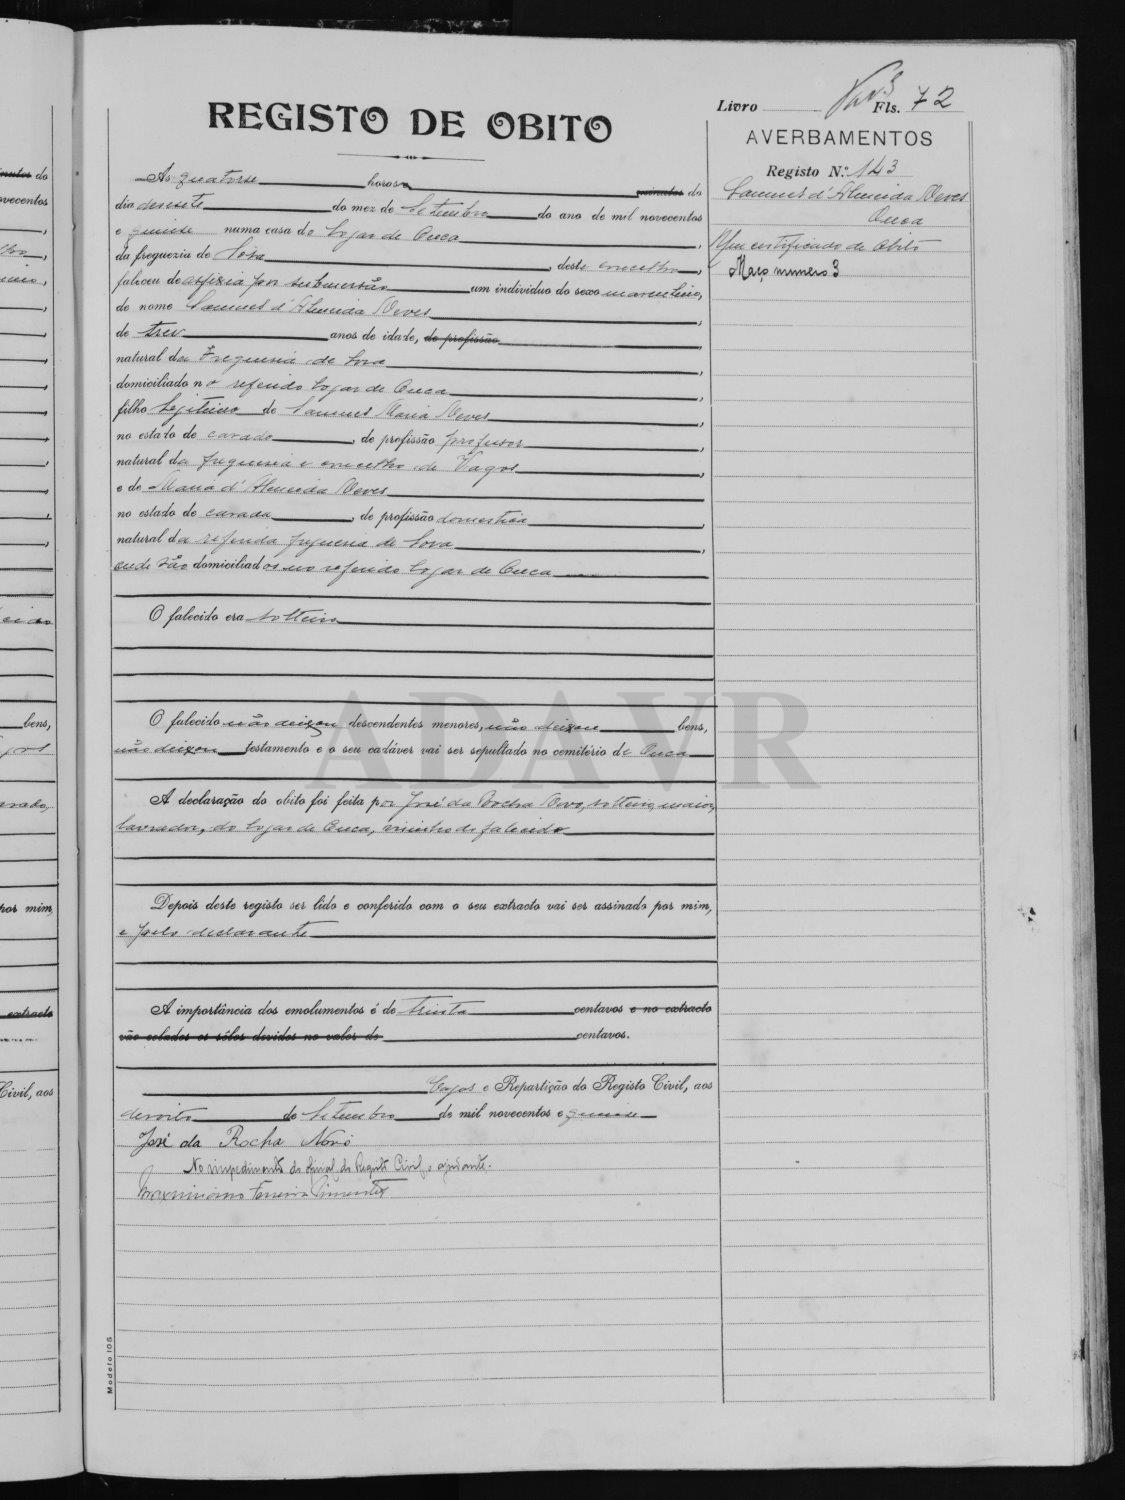 Livro Fls. 72
REGISTO DE OBITO
AVERBAMENTOS
Registo N.º 143
Samuel d'Almeida Neves
Ouca
Um certificado de obito
Maço numero 3
Às quatorze horas minutos do
dia desesete do mez de Setembro do ano de mil novecentos
e quinse numa casa do logar de Ouca,
da freguezia de Soza, deste concelho,
faleceu de asfixia por submersão um individuo do sexo masculino,
de nome Samuel d'Almeida Neves,
de tres anos de idade, de profissão
natural da freguesia de Soza,
domiciliado no referido logar de Ouca,
filho legitimo de Samuel Maria Neves,
no estado de casado, de profissão professor,
natural da freguesia e concelho de Vagos,
e de Maria d'Almeida Neves
no estado de casada, de profissão domestica,
natural da referida freguesia de Soza,
onde são domiciliados no referido logar de Ouca
O falecido era solteiro
O falecido não deixou descendentes menores, não deixou bens,
não deixou testamento e o seu cadáver vai ser sepultado no cemitério de Ouca
A declaração do obito foi feita por José da Rocha Novo, solteiro, maior,
lavrador, do logar de Ouca, do falecido
Depois deste registo ser lido e conferido com o seu extracto vai ser assinado por mim,
e pelo declarante
A importância dos emolumentos é de trinta centavos e no extracto
vão colados os sêlos devidos no valor de centavos.
Vagos e Repartição do Registo Civil, aos
desoito de Setembro de mil novecentos e quinse
José da Rocha Novo
No impedimento do oficial do Registo Civil o ajudante.
Ferreira Pimentel
Modelo 105
ADAVR
minutos do
novecentos
bens,
por mim,
extracto
Civil, aos